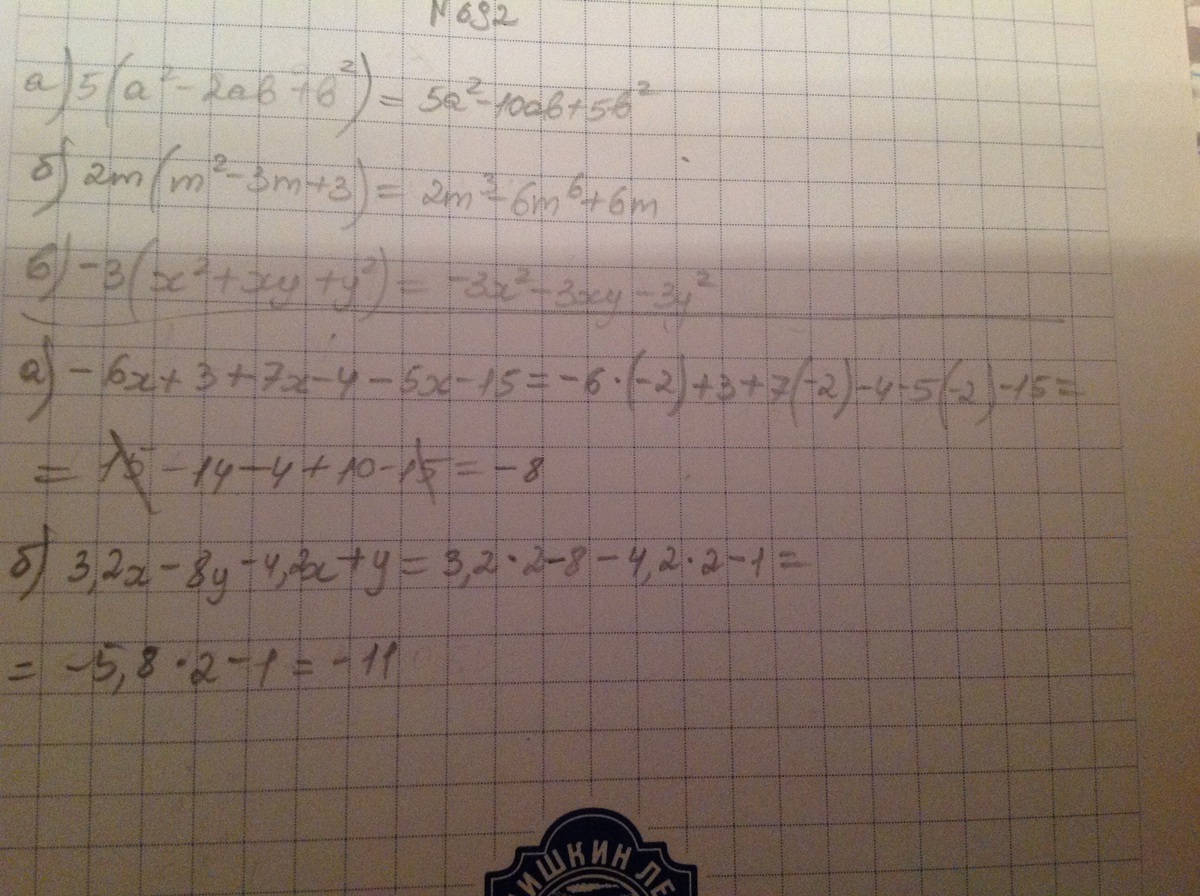 № 692
а) 5(a² - 2ab + b²) = 5a² - 10ab + 5b²
б) 2m(m² - 3m + 3) = 2m³ - 6m⁶ + 6m
в) -3(x² + xy + y²) = -3x² - 3xy - 3y²
а) - 6x + 3 + 7x - 4 - 5x - 15 = -6 · (-2) + 3 + 7(-2) - 4 - 5(-2) - 15 =
= 15 - 14 - 4 + 10 - 15 = -8
б) 3,2x - 8y - 4,2x + y = 3,2 · 2 - 8 - 4,2 · 2 - 1 =
= -5,8 · 2 - 1 = -11
ИШКИН ЛЕ